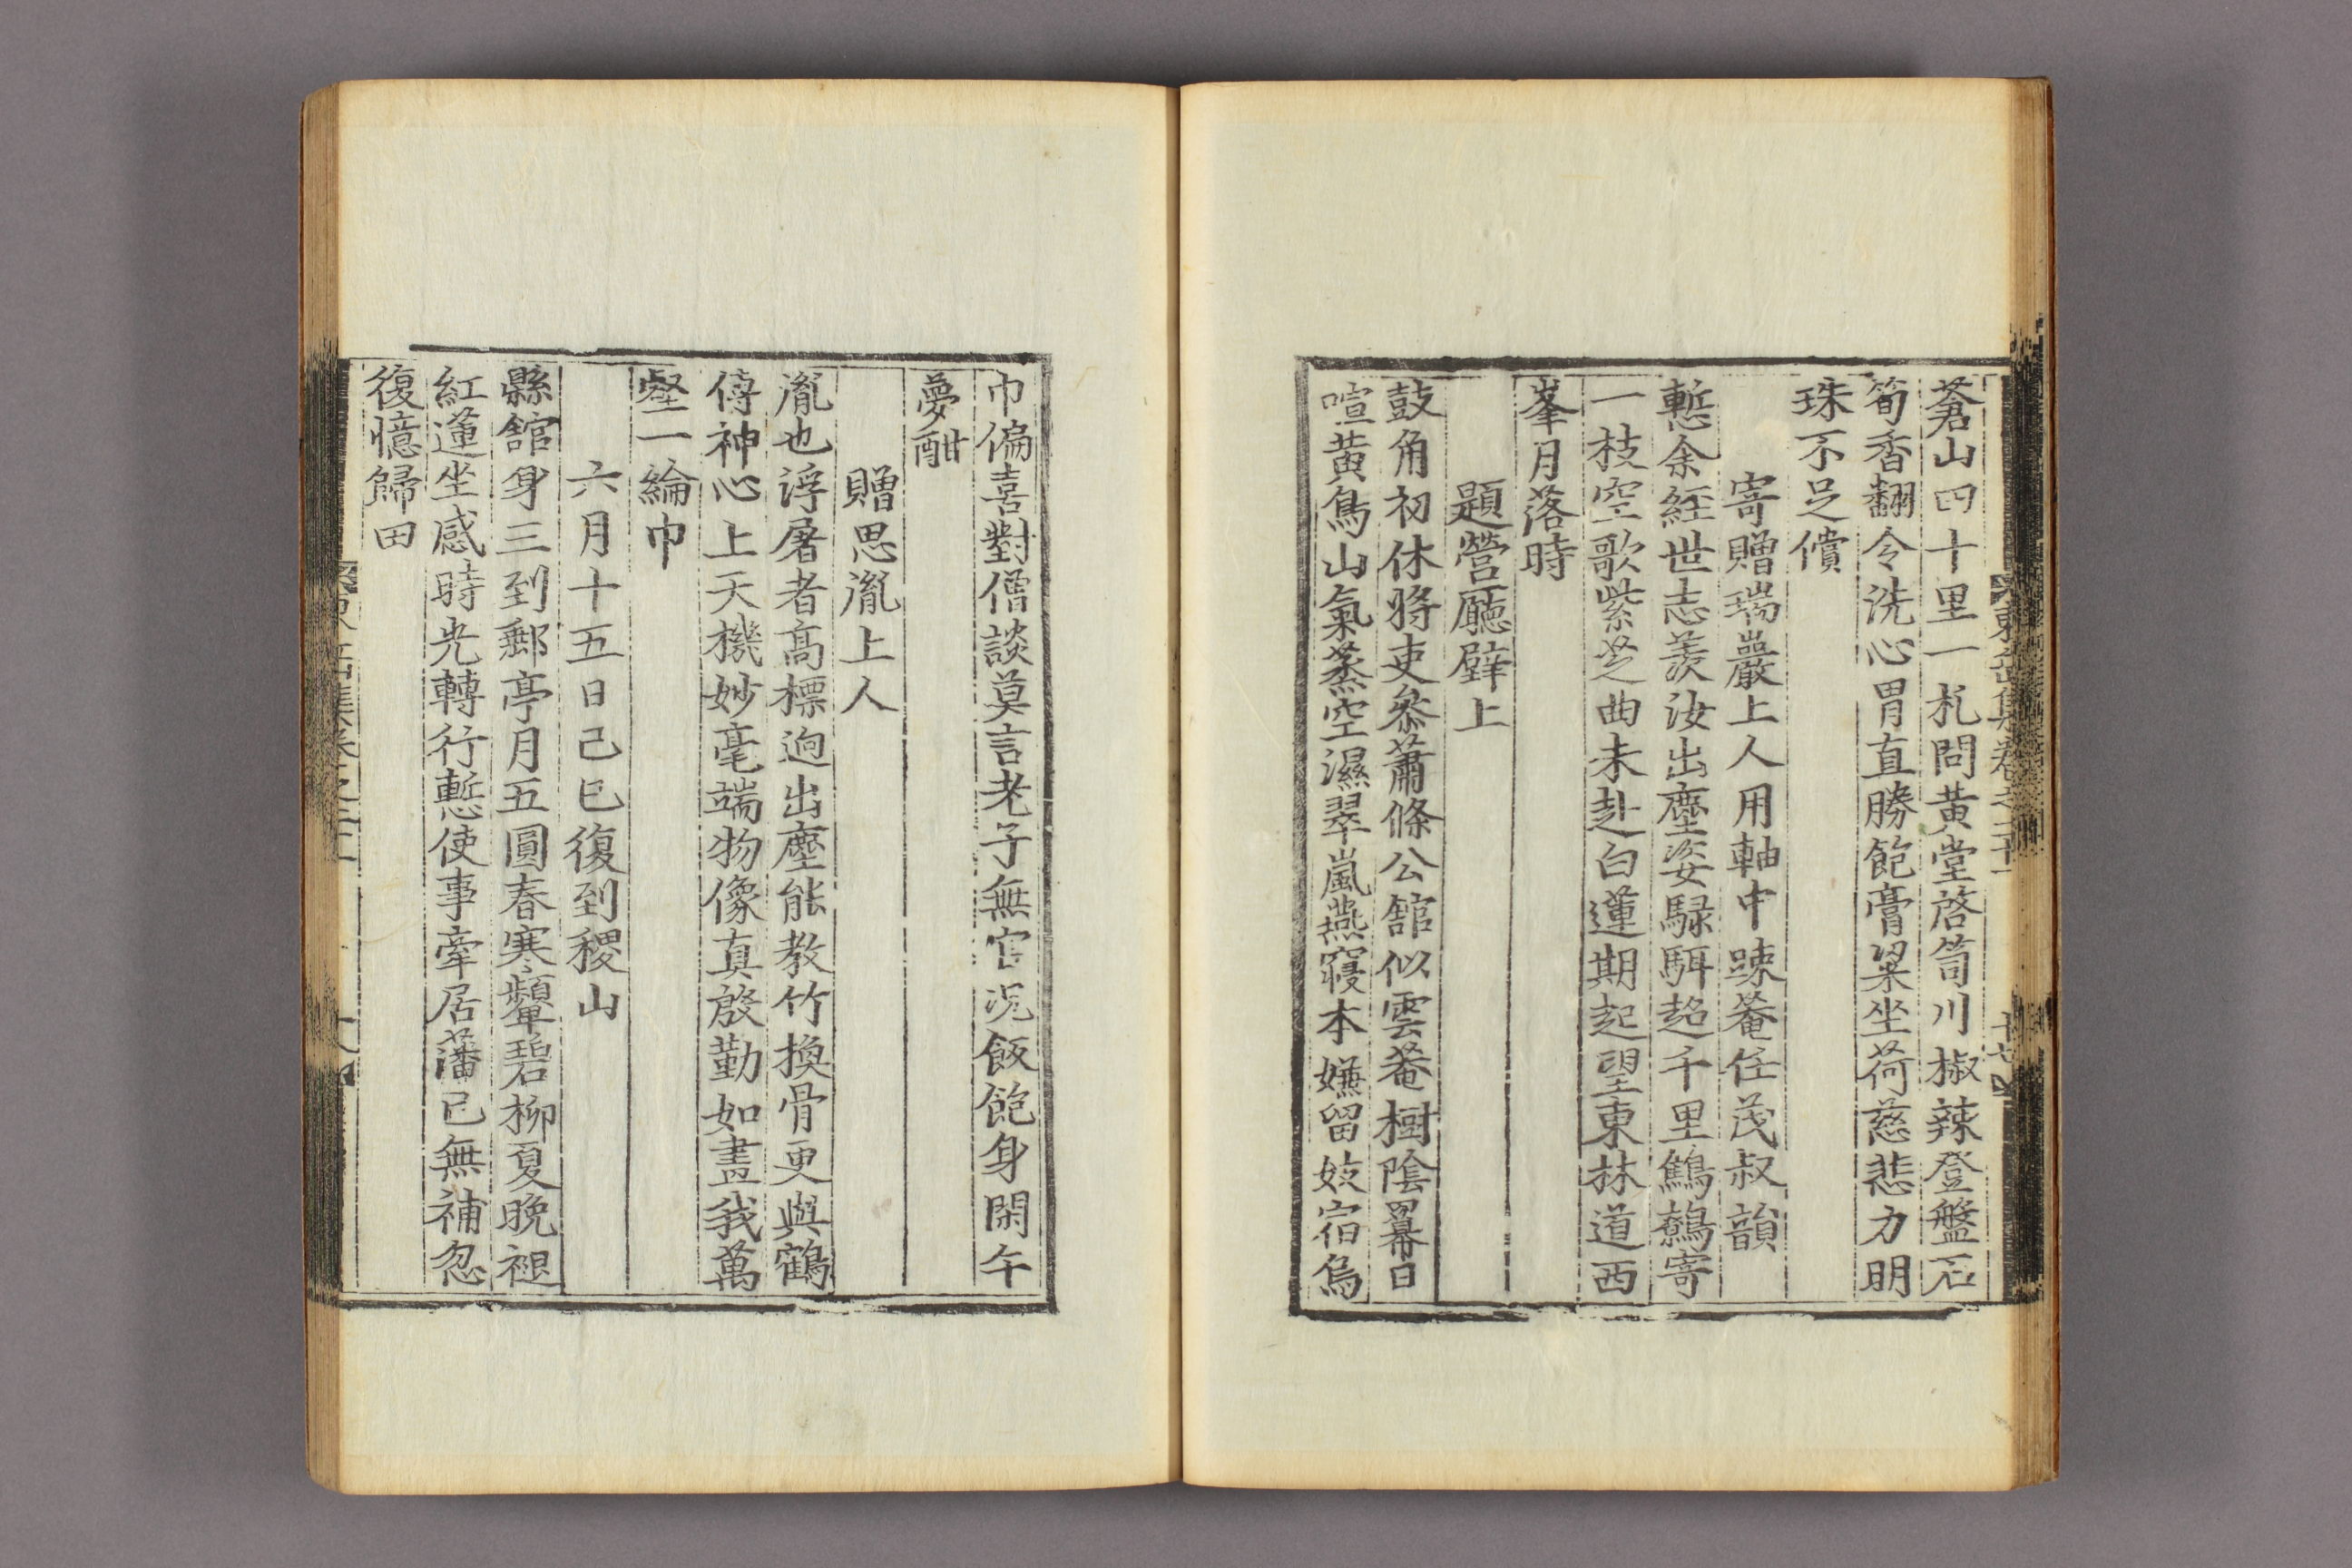 蒼山四十里一札問黃堂啓筒川椒辣登盤石
筍香翻令洗心胃直勝飽膏粱坐荷慈悲力明
珠不足償
寄贈瑞巖上人用軸中踈菴任茂叔韻
慙余經世志羨汝出塵姿騄駬超千里鷦鷯寄
一枝空歌紫芝曲未赴白蓮期起望東林道西
峯月落時
題營廳壁上
鼓角初休將吏叅蕭條公舘似雲菴樹陰羃日
喧黃鳥山氣蒸空濕翠嵐燕寢本嫌留妓宿烏
巾偏喜對僧談莫言老子無官况飯飽身閑午
夢酣
贈思胤上人
胤也浮屠者高標逈出塵能教竹換骨更與鶴
傳神心上天機妙毫端物像真殷勤如畫我萬
壑一綸巾
六月十五日己巳復到稷山
縣舘身三到郵亭月五圓春寒顰碧柳夏晚褪
紅蓮坐感時光轉行慙使事牽居藩已無補忽
復憶歸田